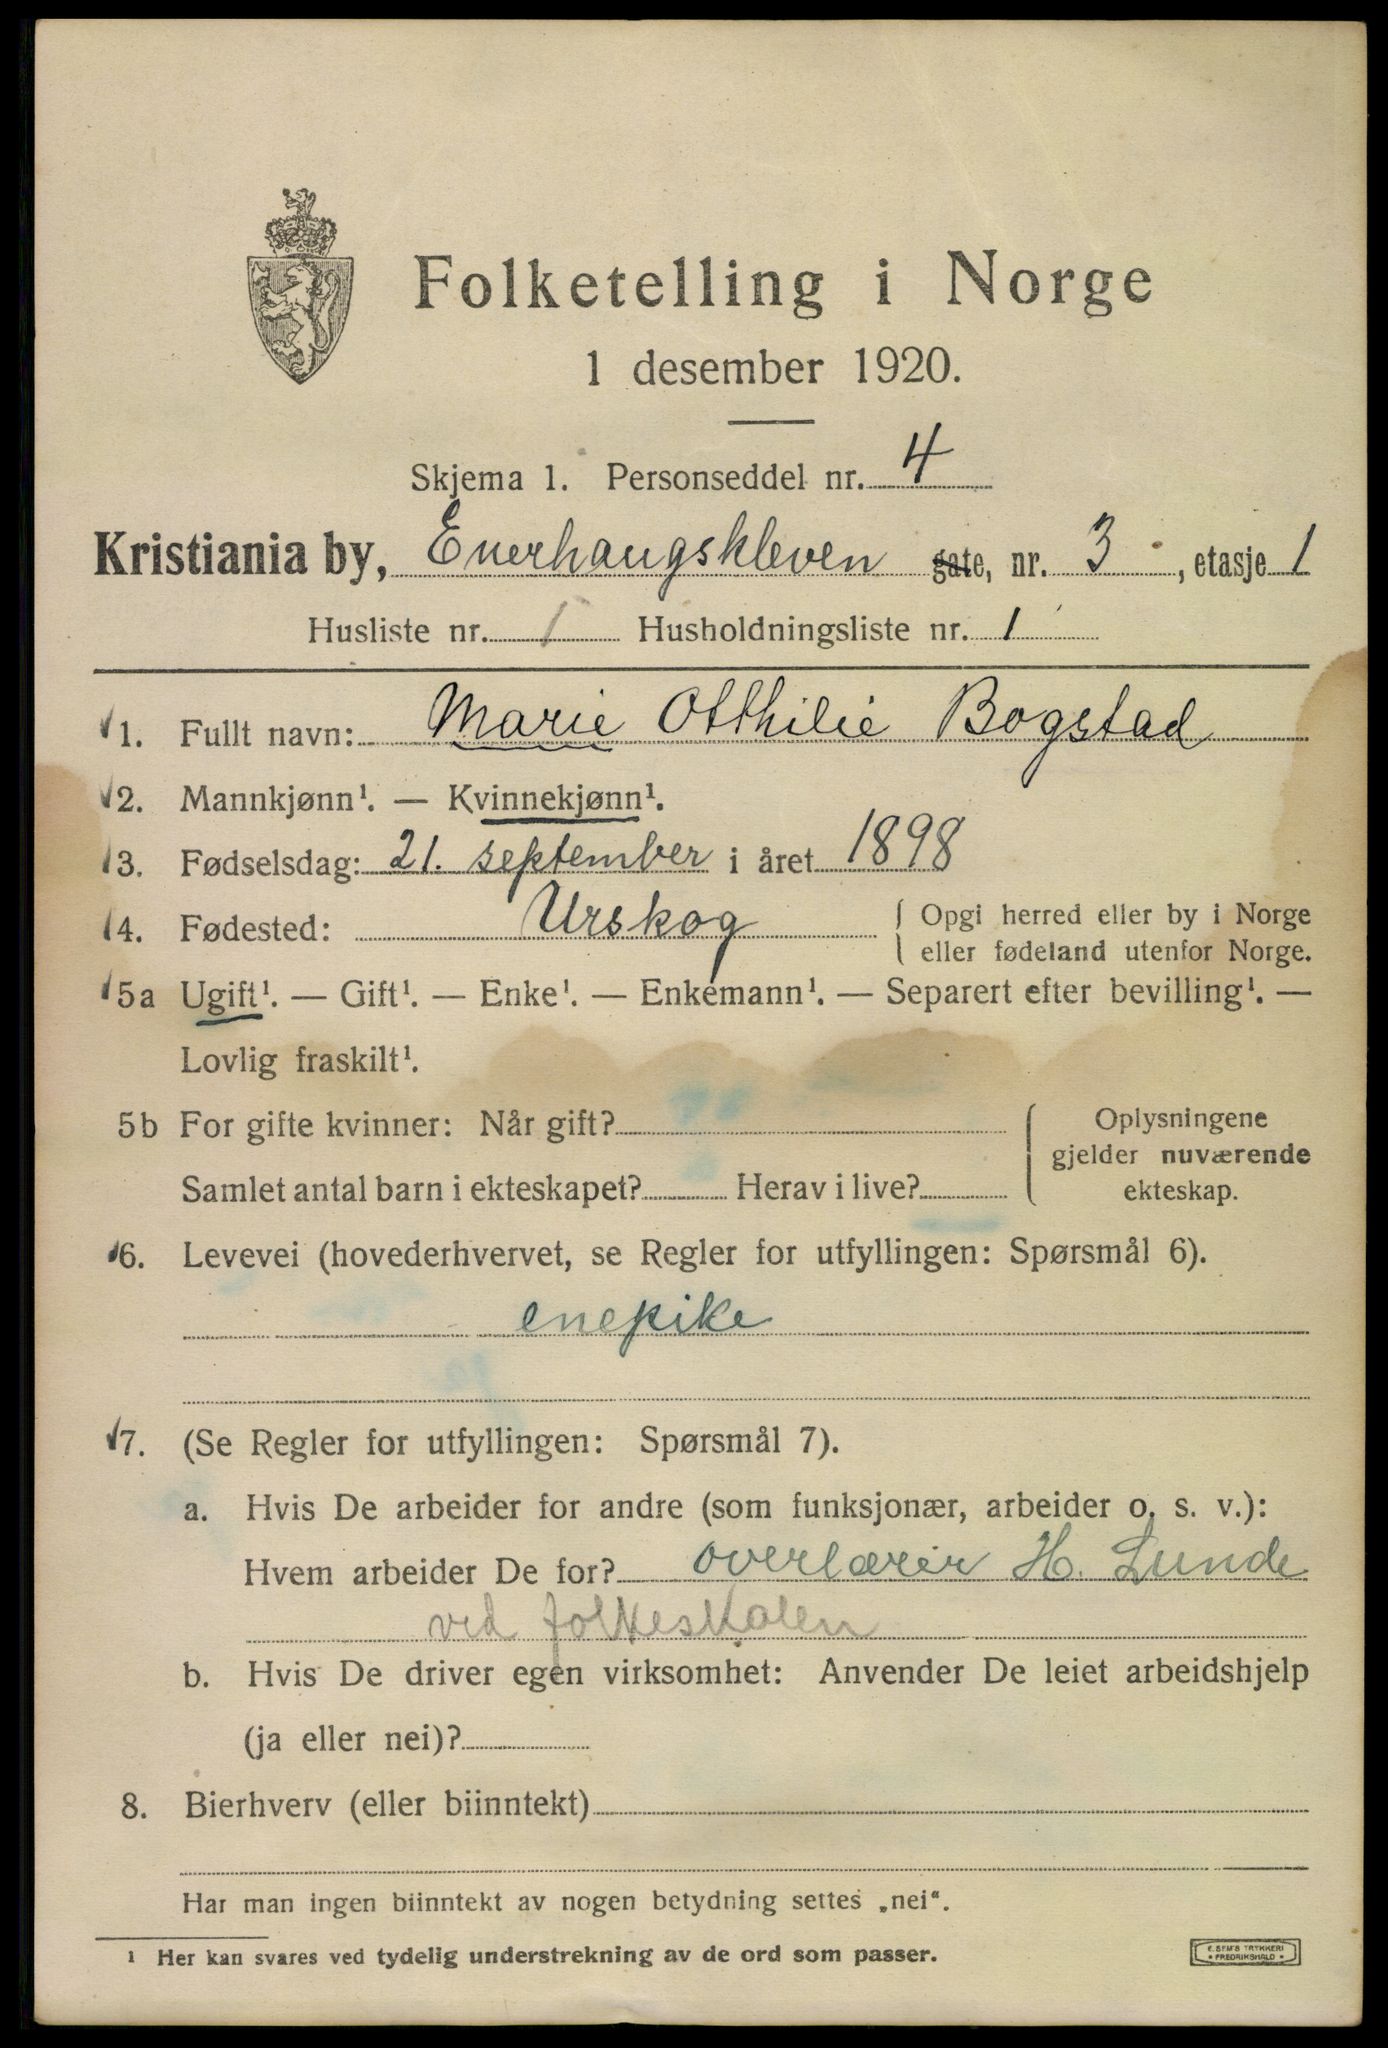 Folketelling i Norge
1 desember 1920.
Skjema 1. Personseddel nr. 4
Kristiania by, Enerhaugskleven gate, nr. 3, etasje 1
Husliste nr. 1 Husholdningsliste nr. 1
1. Fullt navn: Marie Otthilie Bogstad
2. Mannkjønn¹. — Kvinnekjønn¹.
3. Fødselsdag: 21. september i året 1898
4. Fødested: Urskog { Opgi herred eller by i Norge
eller fødeland utenfor Norge.
5a Ugift¹. — Gift¹. — Enke¹. — Enkemann¹. — Separert efter bevilling¹. —
Lovlig fraskilt¹.
5b For gifte kvinner: Når gift? { Oplysningene
gjelder nuværende
Samlet antal barn i ekteskapet? Herav i live? ekteskap.
6. Levevei (hovederhvervet, se Regler for utfyllingen: Spørsmål 6).
enepike
7. (Se Regler for utfyllingen: Spørsmål 7).
a. Hvis De arbeider for andre (som funksjonær, arbeider o. s. v.):
Hvem arbeider De for? overlærer H. Lunde
ved folkeskolen
b. Hvis De driver egen virksomhet: Anvender De leiet arbeidshjelp
(ja eller nei)?
8. Bierhverv (eller biinntekt)
Har man ingen biinntekt av nogen betydning settes „nei“.
¹ Her kan svares ved tydelig understrekning av de ord som passer.
E. SEM'S TRYKKERI
• FREDRIKSHALD •